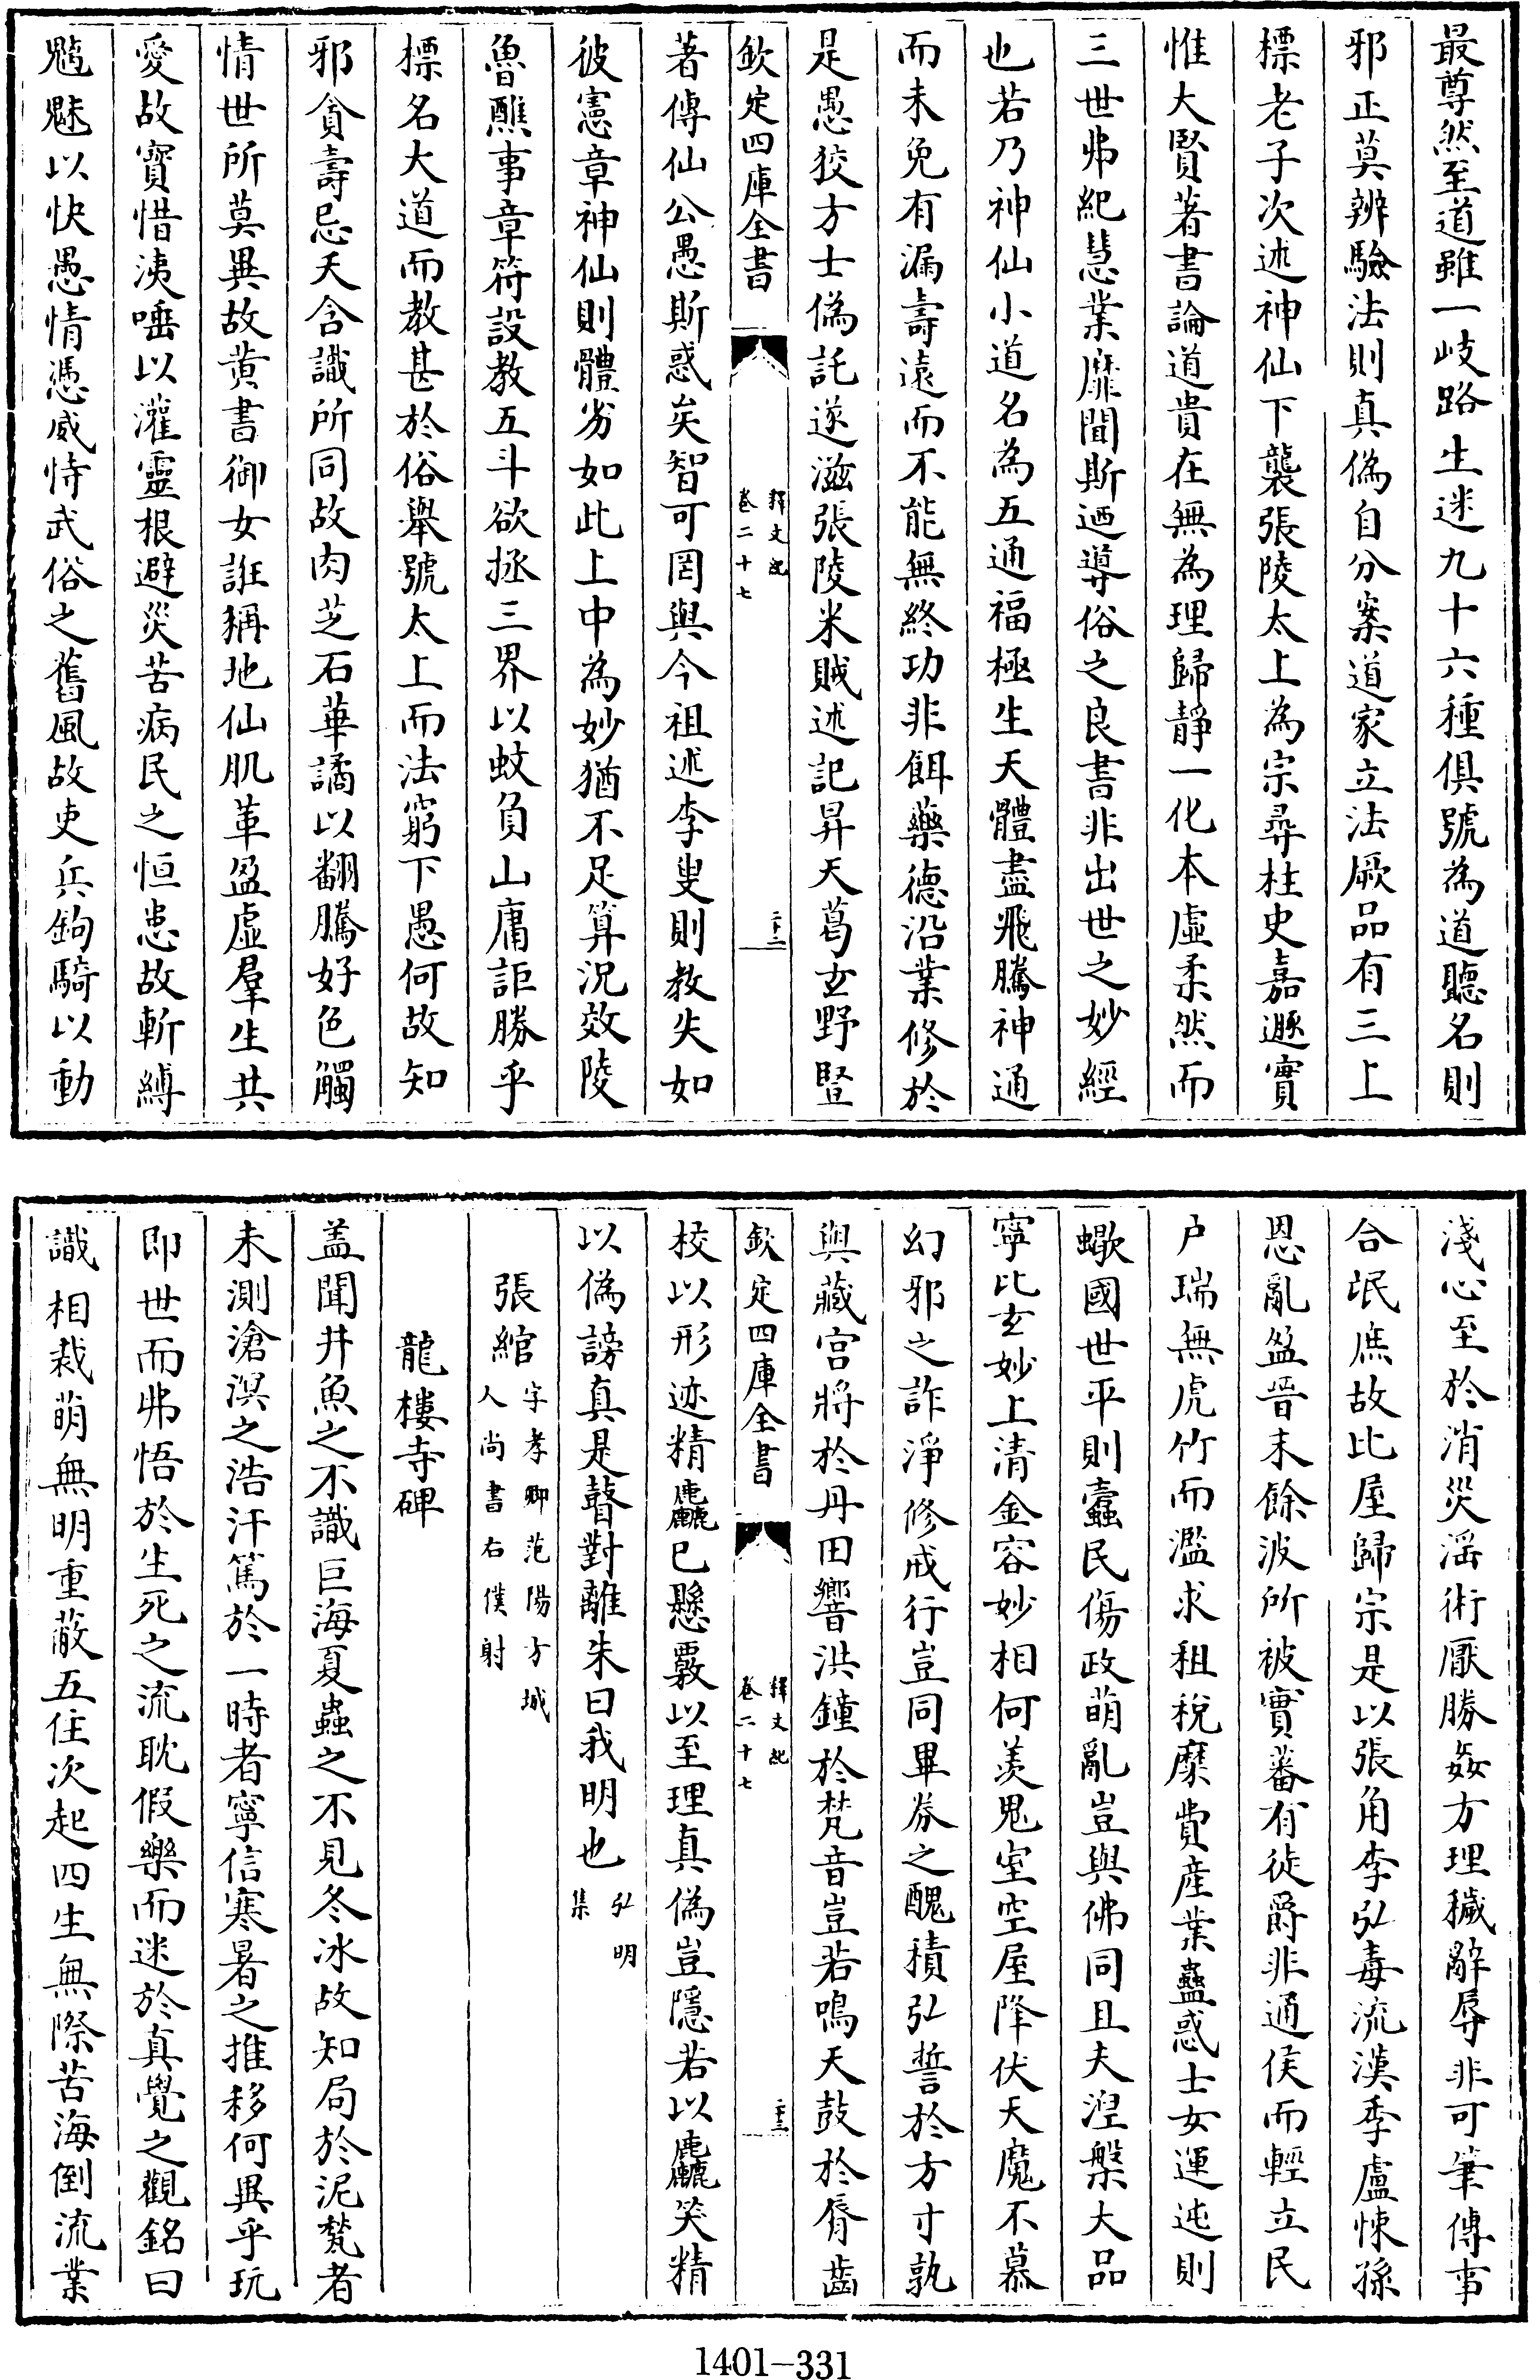 最尊然至道雖一岐路生迷九十六種俱號為道聽名則
邪正莫辨驗法則真偽自分案道家立法厥品有三上
標老子次述神仙下襲張陵太上為宗尋柱史嘉遯實
惟大賢著書論道貴在無為理歸靜一化本虛柔然而
三世弗紀慧業靡聞斯迺導俗之良書非出世之妙經
也若乃神仙小道名為五通福極生天體盡飛騰神通
而未免有漏壽遠而不能無終功非餌藥德沿業修於
是愚狡方士偽託遂滋張陵米賊述記昇天葛玄野豎
欽定四庫全書
釋文紀
卷二十七
二十二
著傳仙公愚斯惑矣智可罔與今祖述李叟則教失如
彼憲章神仙則體劣如此上中為妙猶不足算況效陵
魯醮事章符設教五斗欲拯三界以蚊負山庸詎勝乎
標名大道而教甚於俗舉號太上而法窮下愚何故知
邪貪壽忌夭含識所同故肉芝石華譎以翻騰好色觸
情世所莫異故黃書御女誑稱地仙肌革盈虛羣生共
愛故寳惜洟唾以灌靈根避災苦病民之恒患故斬縛
魑魅以快愚情憑威恃武俗之舊風故吏兵鉤騎以動
淺心至於消災淫術厭勝姦方理穢辭辱非可筆傳事
合氓庶故比屋歸宗是以張角李弘毒流漢季盧悚孫
恩亂盈晉末餘波所被實蕃有徒爵非通侯而輕立民
戶瑞無虎竹而濫求租稅糜費產業蠱惑士女運迍則
蠍國世平則蠹民傷政萌亂豈與佛同且夫涅槃大品
寧比玄妙上清金容妙相何羨鬼室空屋降伏天魔不慕
幻邪之詐淨修戒行豈同畢券之醜積弘誓於方寸孰
與藏宮將於丹田響洪鐘於梵音豈若鳴天鼓於脣齒
欽定四庫全書
釋文紀
卷二十七
二十三
校以形迹精麤已懸覈以至理真偽豈隱若以麤笑精
以偽謗真是瞽對離朱曰我明也弘明集
張綰字孝卿范陽方城人尚書右僕射
龍樓寺碑
盖聞井魚之不識巨海夏蟲之不見冬冰故知局於泥甃者
未測滄溟之浩汗篤於一時者寧信寒暑之推移何異乎玩
即世而弗悟於生死之流耽假樂而迷於真覺之觀銘曰
識相栽萌無明重蔽五住次起四生無際苦海倒流業
1401-331